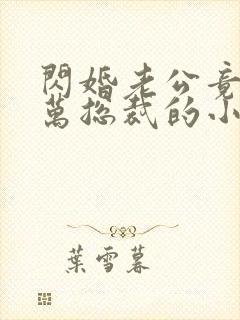 閃婚老公竟
萬總裁的小
葉雪暮